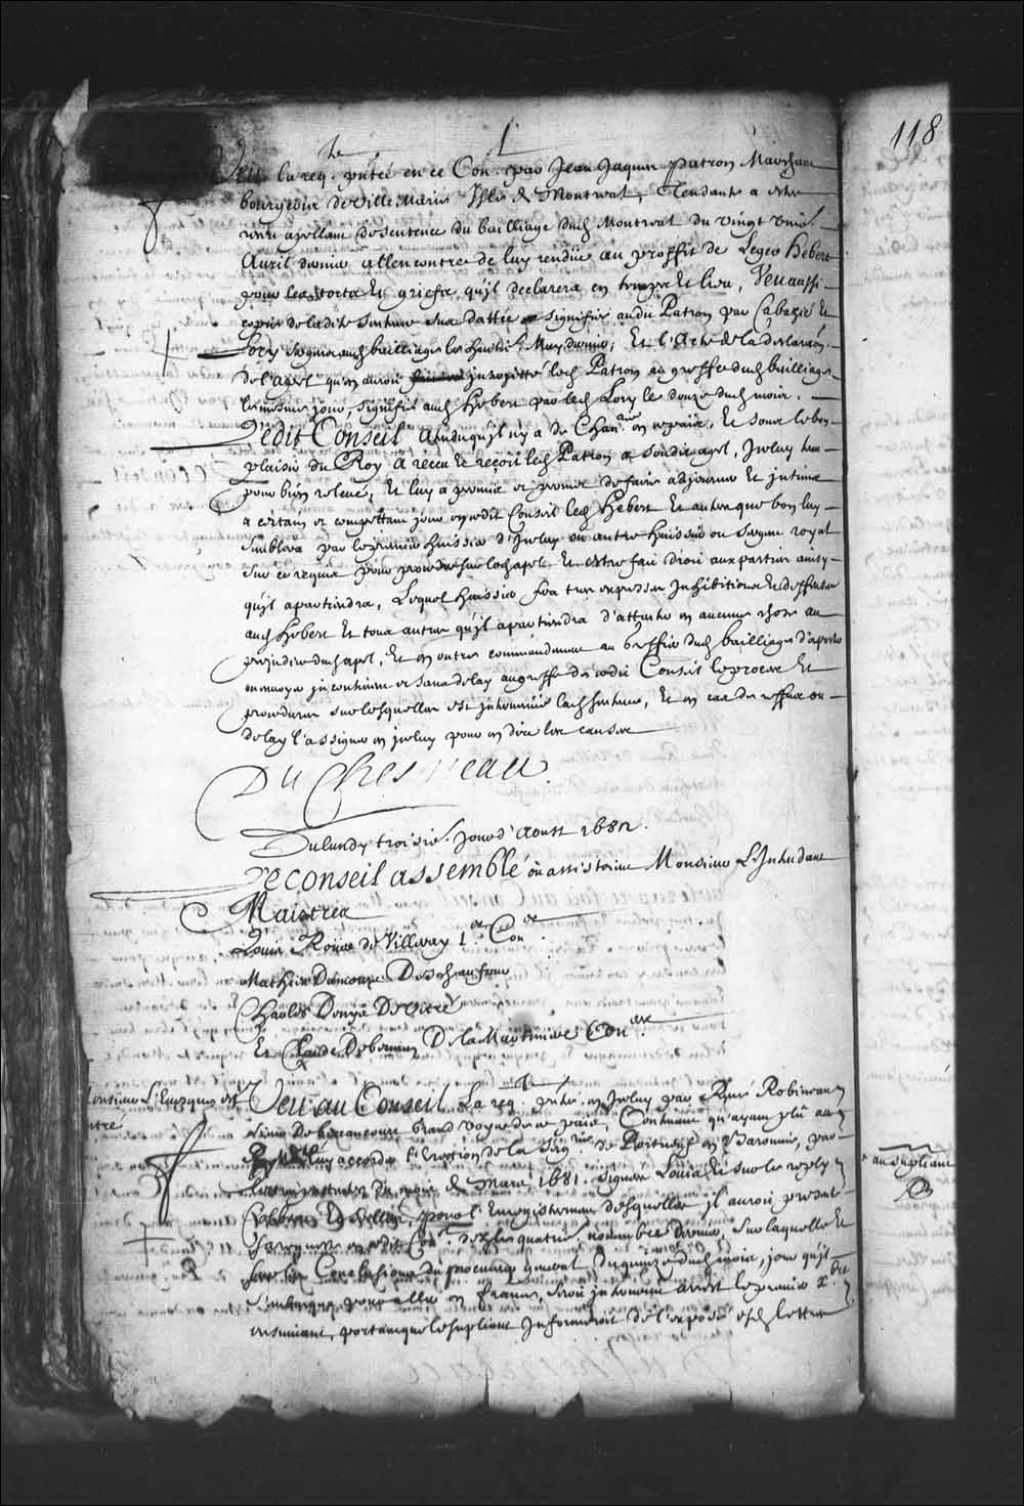 118
Veu la req.te pntée en ce Con.l par Jean Jaques Patron Marchant
bourgeois de Ville Marie Isle de Montreal, Tendante a estre
receu apellant de sentence du bailliage dud. Montreal du vingt
Auril dernier allencontre de luy rendüe au proffit de Leger Hebert
pour les torts et griefs qu'jl declarera en temps et lieu, Veu aussi
copie de ladite sentence sus dattée signifiée audit Patron par Cabazié
Et l'Acte de la declaraõn
de l'apel qu'en auroit jnterjetté led. Patron au greffe dud. bailliage
le mesme jour, signifié aud. Hebert par led. Lory le douze dud. mois.
Ledit Conseil attendu qu'jl n'y a de Chan.rie en ce païs, Et sous le bon
plaisir du Roy a receu et reçoit led. Patron a sondit apel, Jceluy tenu
pour bien releué, Et luy a permis et permet de faire adjourner et jntimer
a certain et competant jour en cedit Conseil led. Hebert Et autres que bon luy
semblera par le premier huissier d'Jceluy ou autre huissier ou sergent royal
sur ce requis pour proceder sur led. apel, Et estre fait droit aux parties ainsy
qu'jl apartiendra, Lequel huissier fera tres expresses Jnhibitions et deffenses
aud. Hebert Et tous autres qu'jl apartiendra d'attenter en aucune chose au
prejudice dud. apel, Et en outre commandement au Greffier dud. bailliage d'aporter
ou enuoyer jncontinent et sans delay au greffe de cedit Conseil le procez Et
procedures sur lesquelles est jnteruenüe lad. sentence, Et en cas de reffus ou
delay l'assigner en jceluy pour en dire les causes
DuChesneau
Du lundy troisie. Jour d'Aoust 1682.
Le conseil assemblé ou assistoient Monsieur L'Intendant
Maistres
Louis Roüer de Villeray 1.er Con.er
Mathieu Damours Deschaufour
Charles Denys De Vitré
Et Claude Debermen De la Martiniere Con.ers
Monsieur L'Euesque est
entré
Veu au Conseil La req.te pntée en Jceluy par René Robineau
sieur De becancourt Grand voyer de ce païs, Contenant qu'ayant plû au
Roy de luy accorder l'Erection de la Seig.rie de Portneuf en Baronnie, par
lettres patentes du mois de Mars 1681. signées Louis Et sur le reply
Colbert Et sellées, pour l'Enregistrement desquelles jl auroit presenté
sa requeste en cedit Con.l dez le quatrie. nouembre dernier, sur laquelle Et
sur les Conclusions du procureur general du quinze dud. mois, jour qu'jl
s'embarqua pour aller en france, seroit jnteruenu arrest le premier x.bre
ensuiuant, portant que le supliant Jnformeroit de l'exposé esd. lettres
au supliant